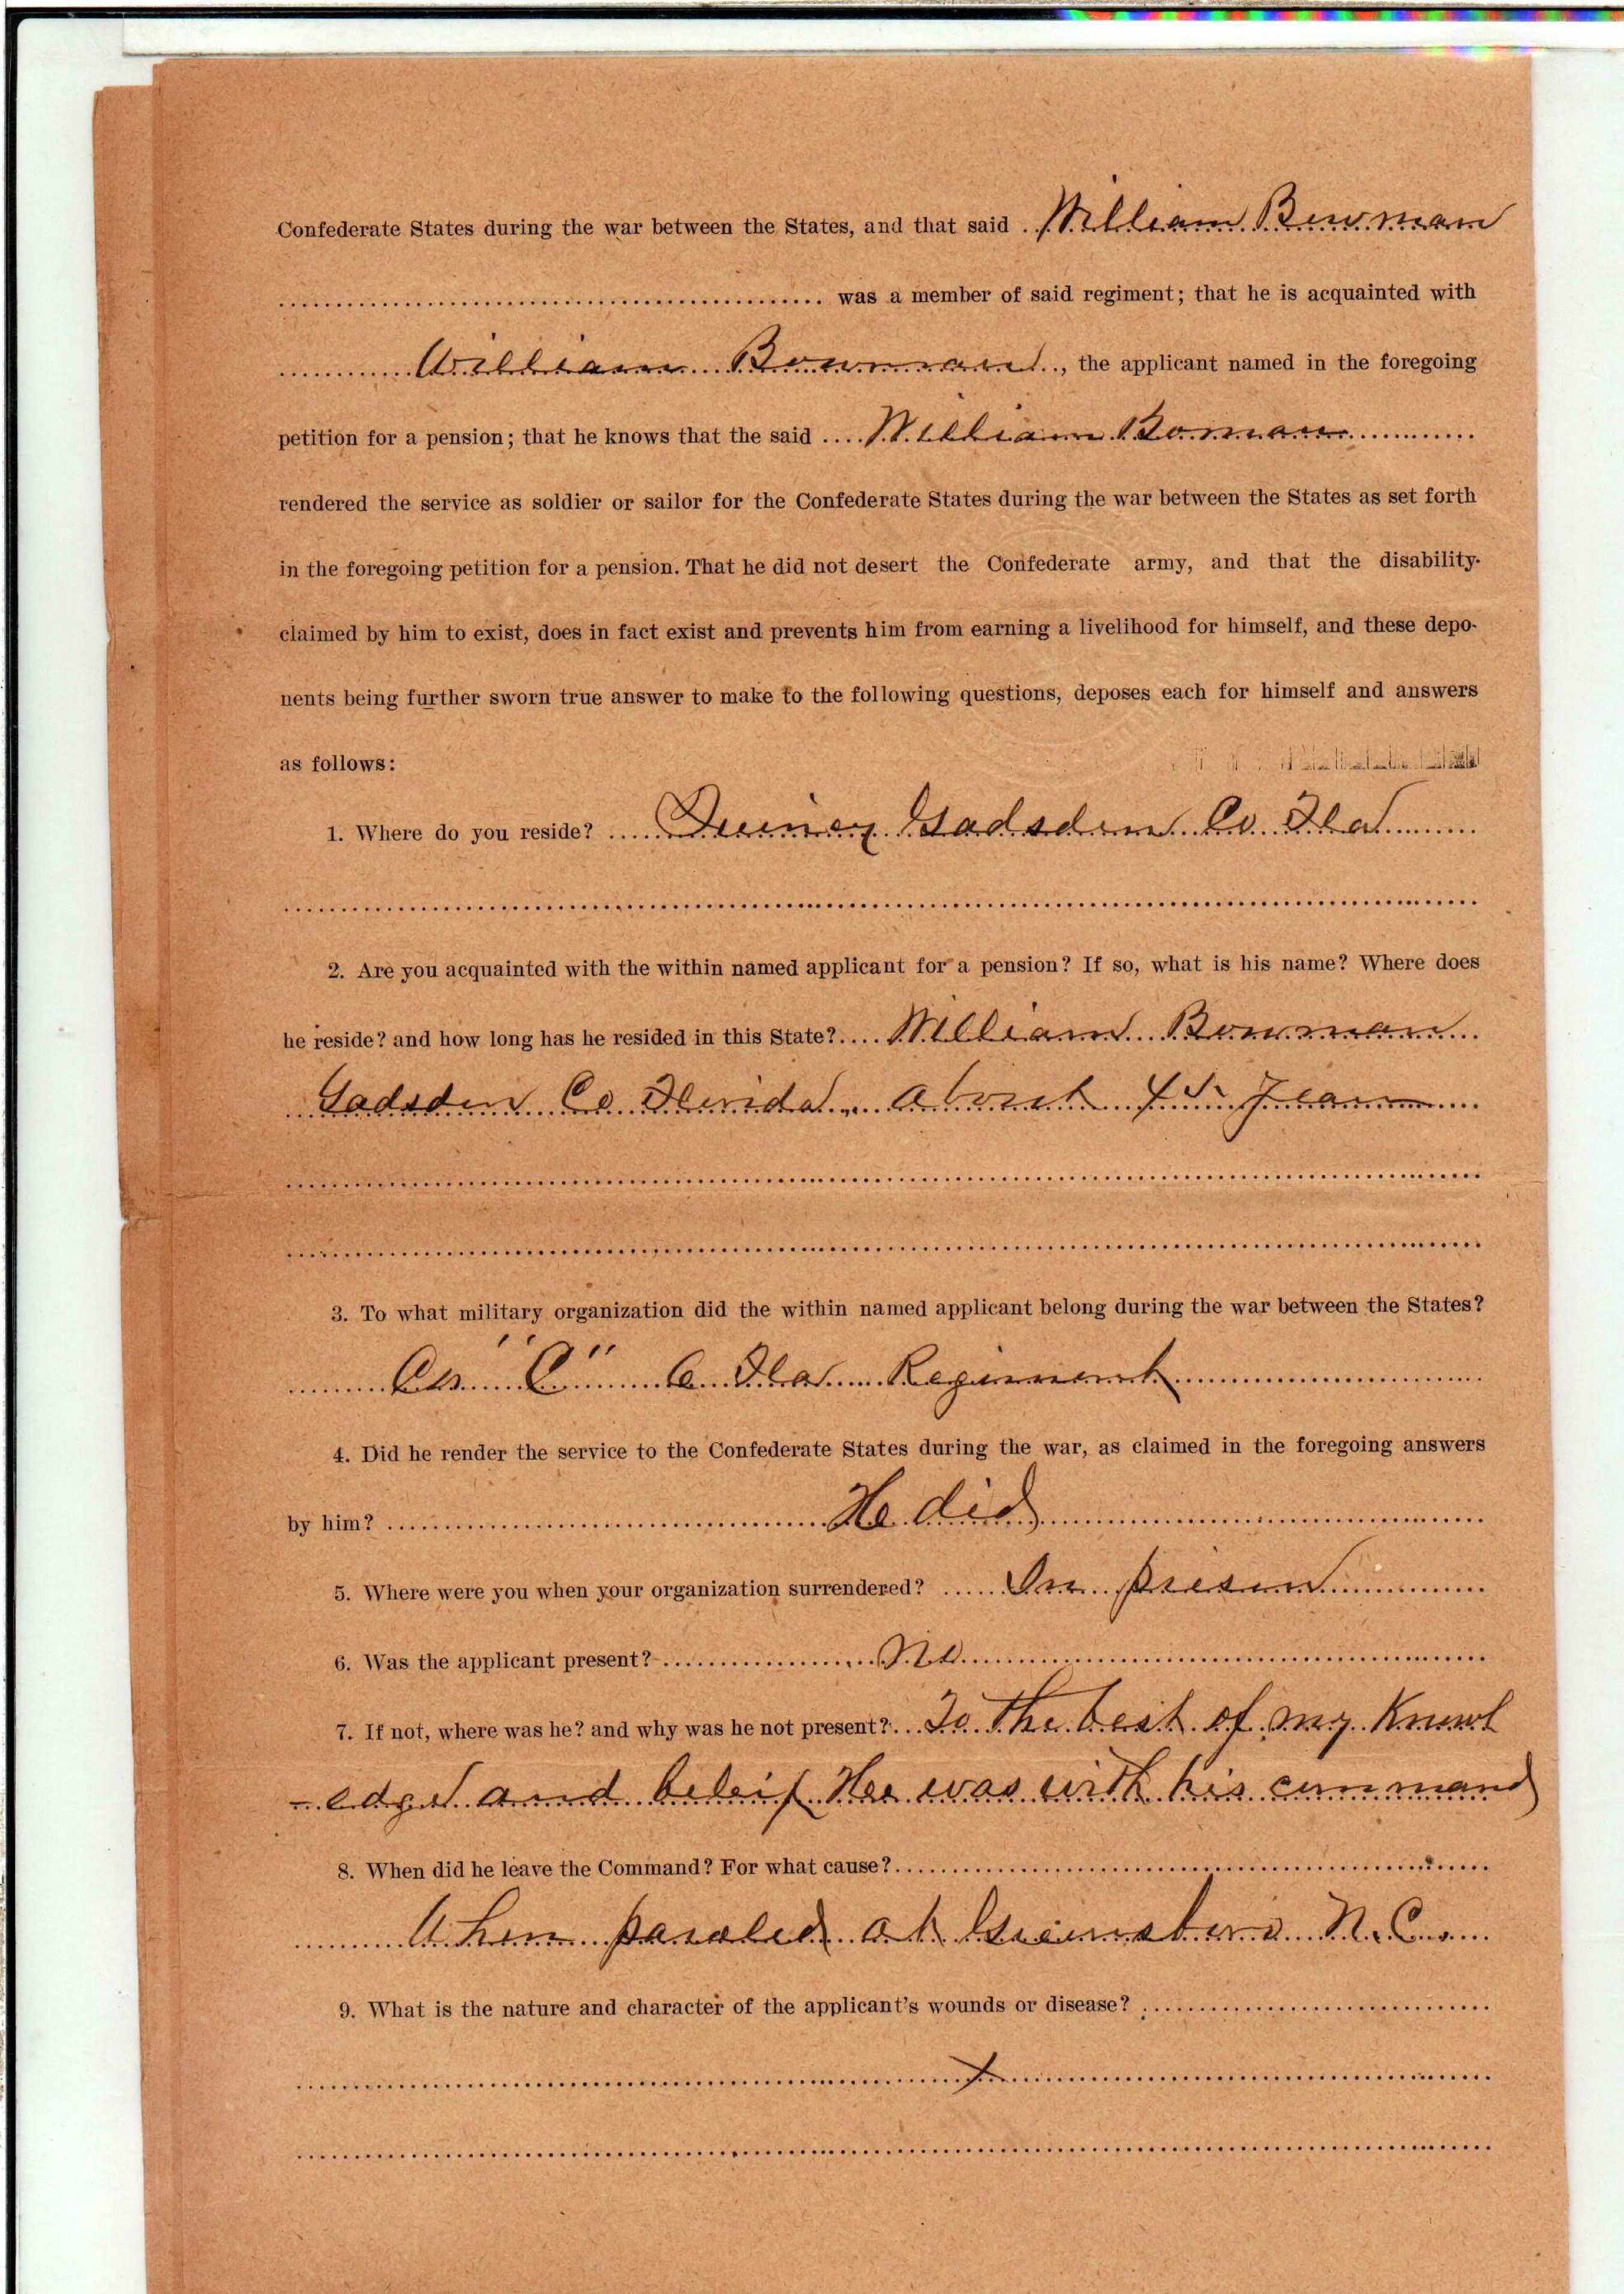 Confederate States during the war between the States, and that said William Bowman
was a member of said regiment; that he is acquainted with
William Bowman, the applicant named in the foregoing
petition for a pension; that he knows that the said William Boman
rendered the service as soldier or sailor for the Confederate States during the war between the States as set forth
in the foregoing petition for a pension. That he did not desert the Confederate army, and that the disability
claimed by him to exist, does in fact exist and prevents him from earning a livelihood for himself, and these depo-
nents being further sworn true answer to make to the following questions, deposes each for himself and answers
as follows:
1. Where do you reside? Quincy Gadsden Co. Fla
2. Are you acquainted with the within named applicant for a pension? If so, what is his name? Where does
he reside? and how long has he resided in this State? William Bowman
Gadsden Co Florida, about 45 Years
3. To what military organization did the within named applicant belong during the war between the States?
Co "C" 6 Fla Regiment
4. Did he render the service to the Confederate States during the war, as claimed in the foregoing answers
by him? He did
5. Where were you when your organization surrendered? In prison
6. Was the applicant present? No
7. If not, where was he? and why was he not present? To the best of my Knowl
-edge and beleif Hee was with his command
8. When did he leave the Command? For what cause?
When paroled at Greensboro N.C.
9. What is the nature and character of the applicant's wounds or disease?
x